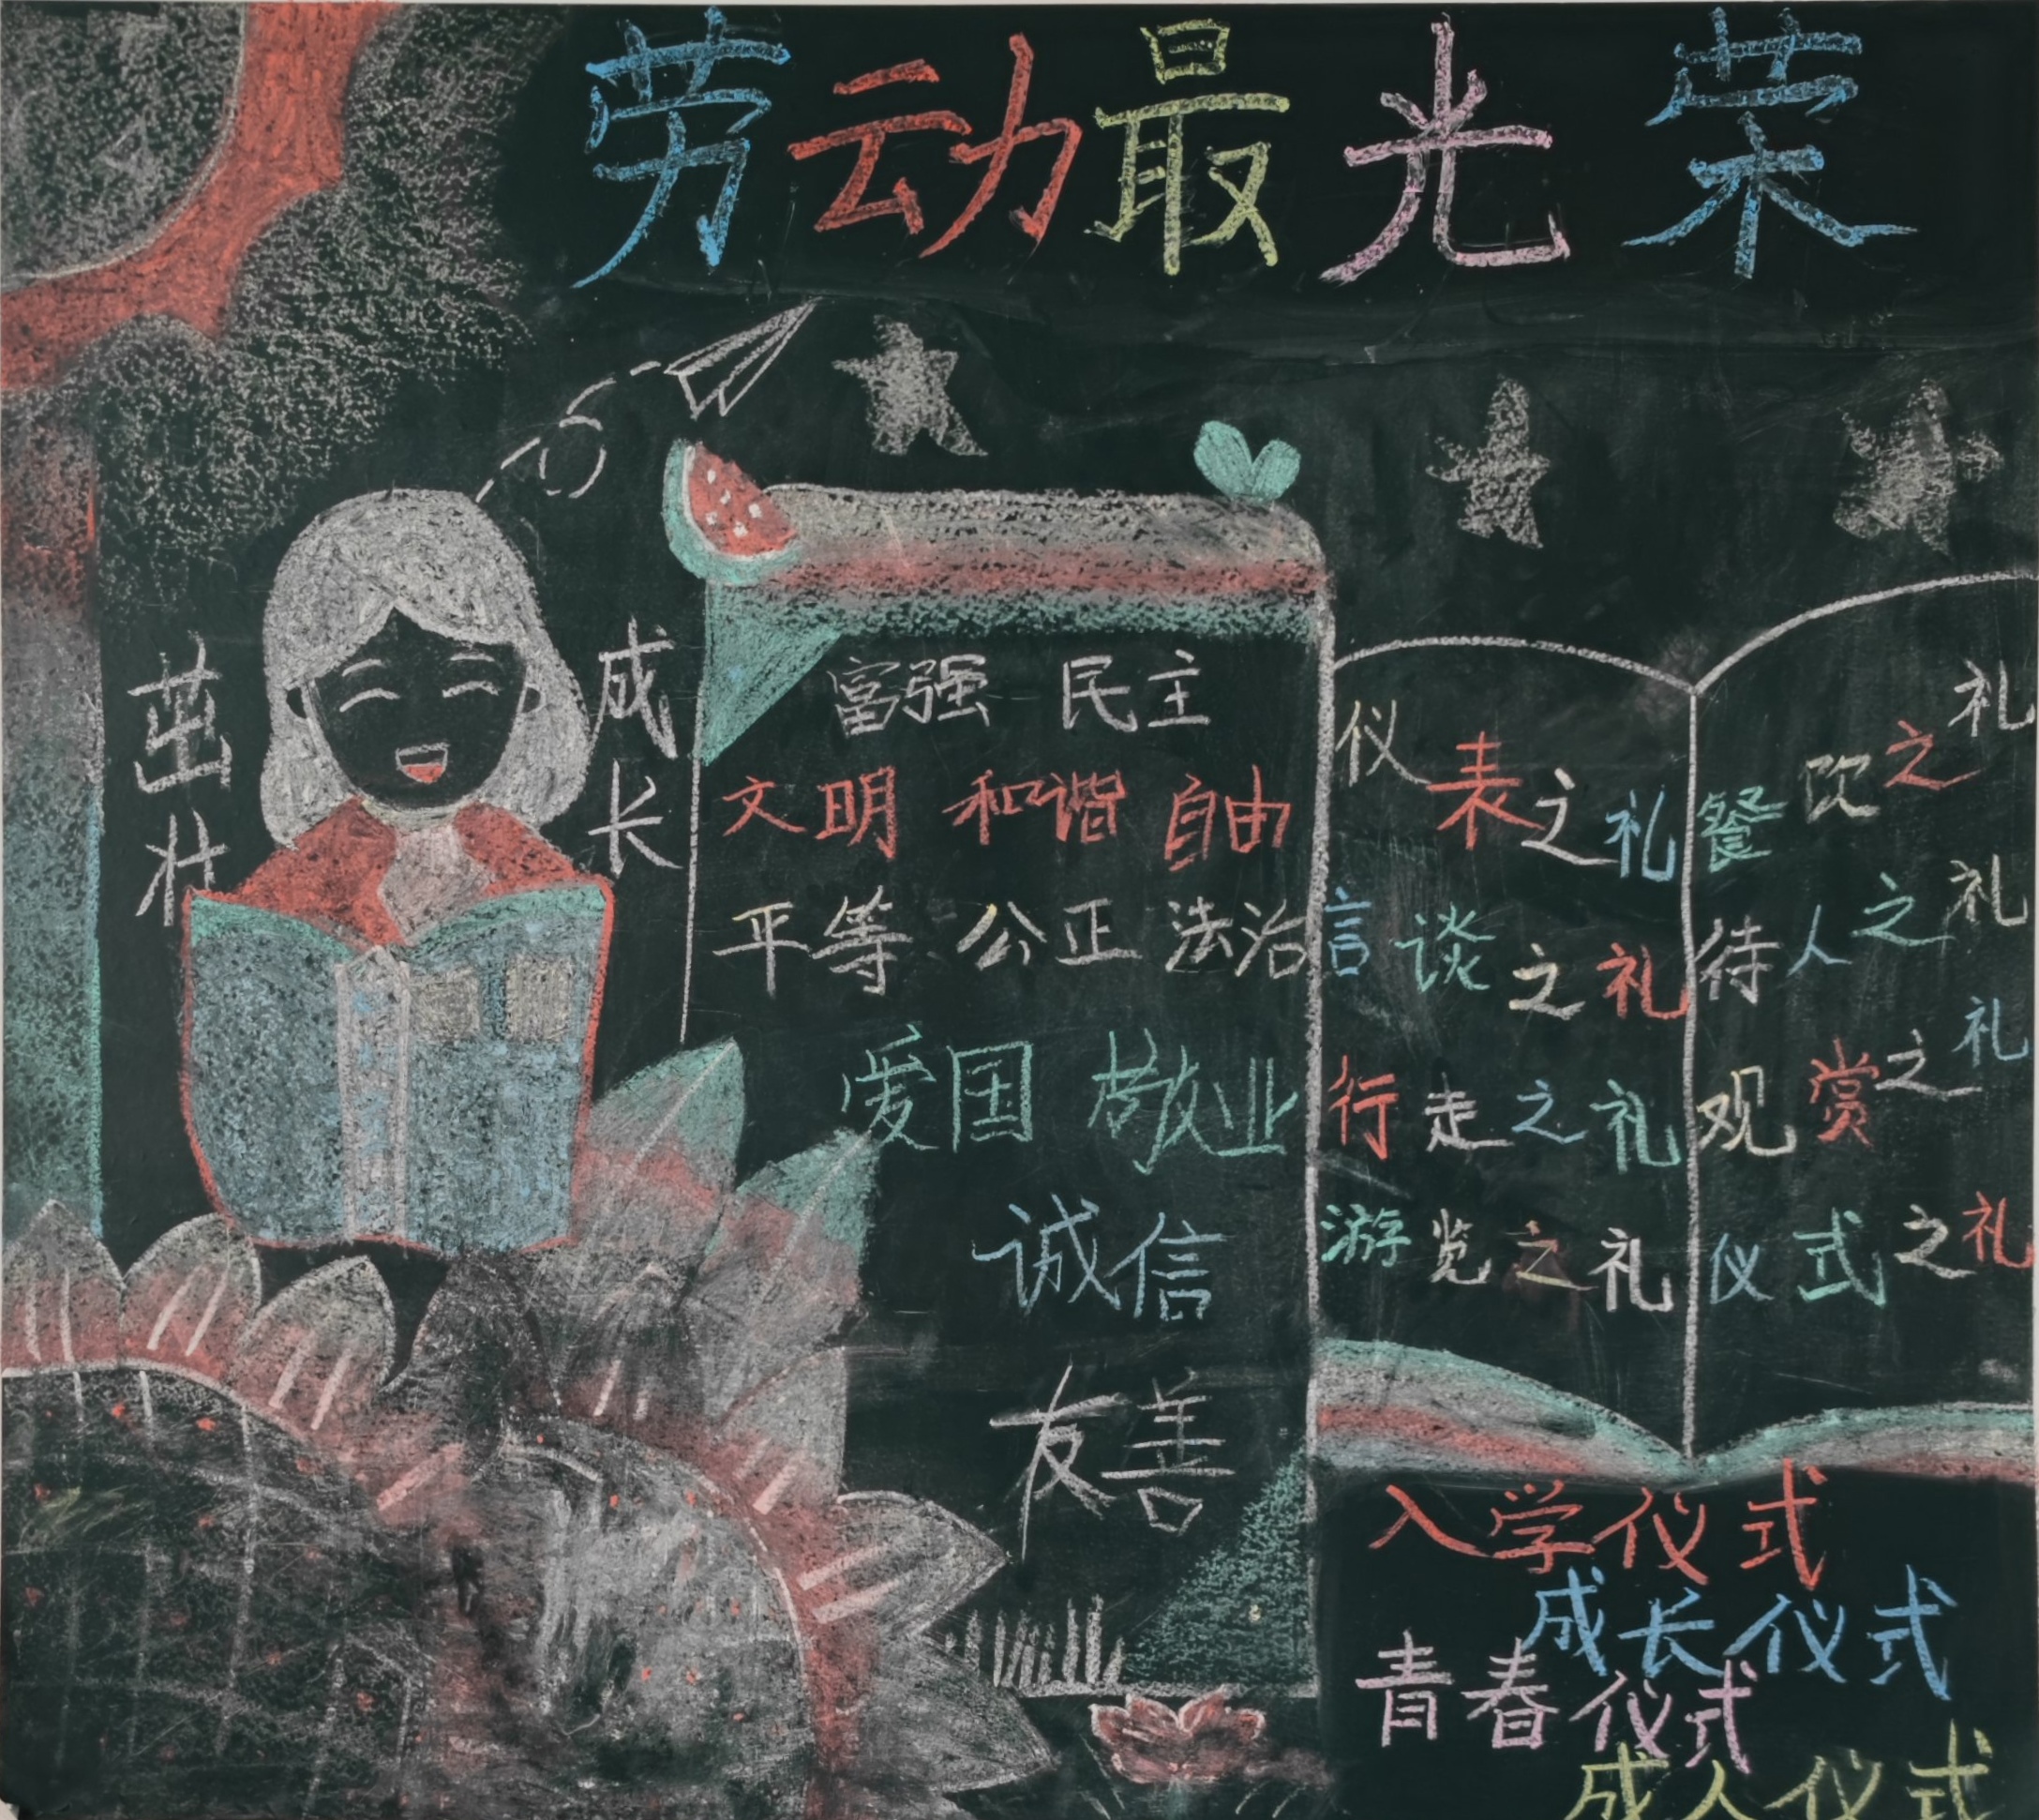 劳动最光荣
茁壮
成长
富强 民主
文明 和谐 自由
平等 公正 法治
爱国 敬业
诚信
友善
仪表之礼
言谈之礼
行走之礼
游览之礼
餐饮之礼
待人之礼
观赏之礼
仪式之礼
入学仪式
成长仪式
青春仪式
成人仪式